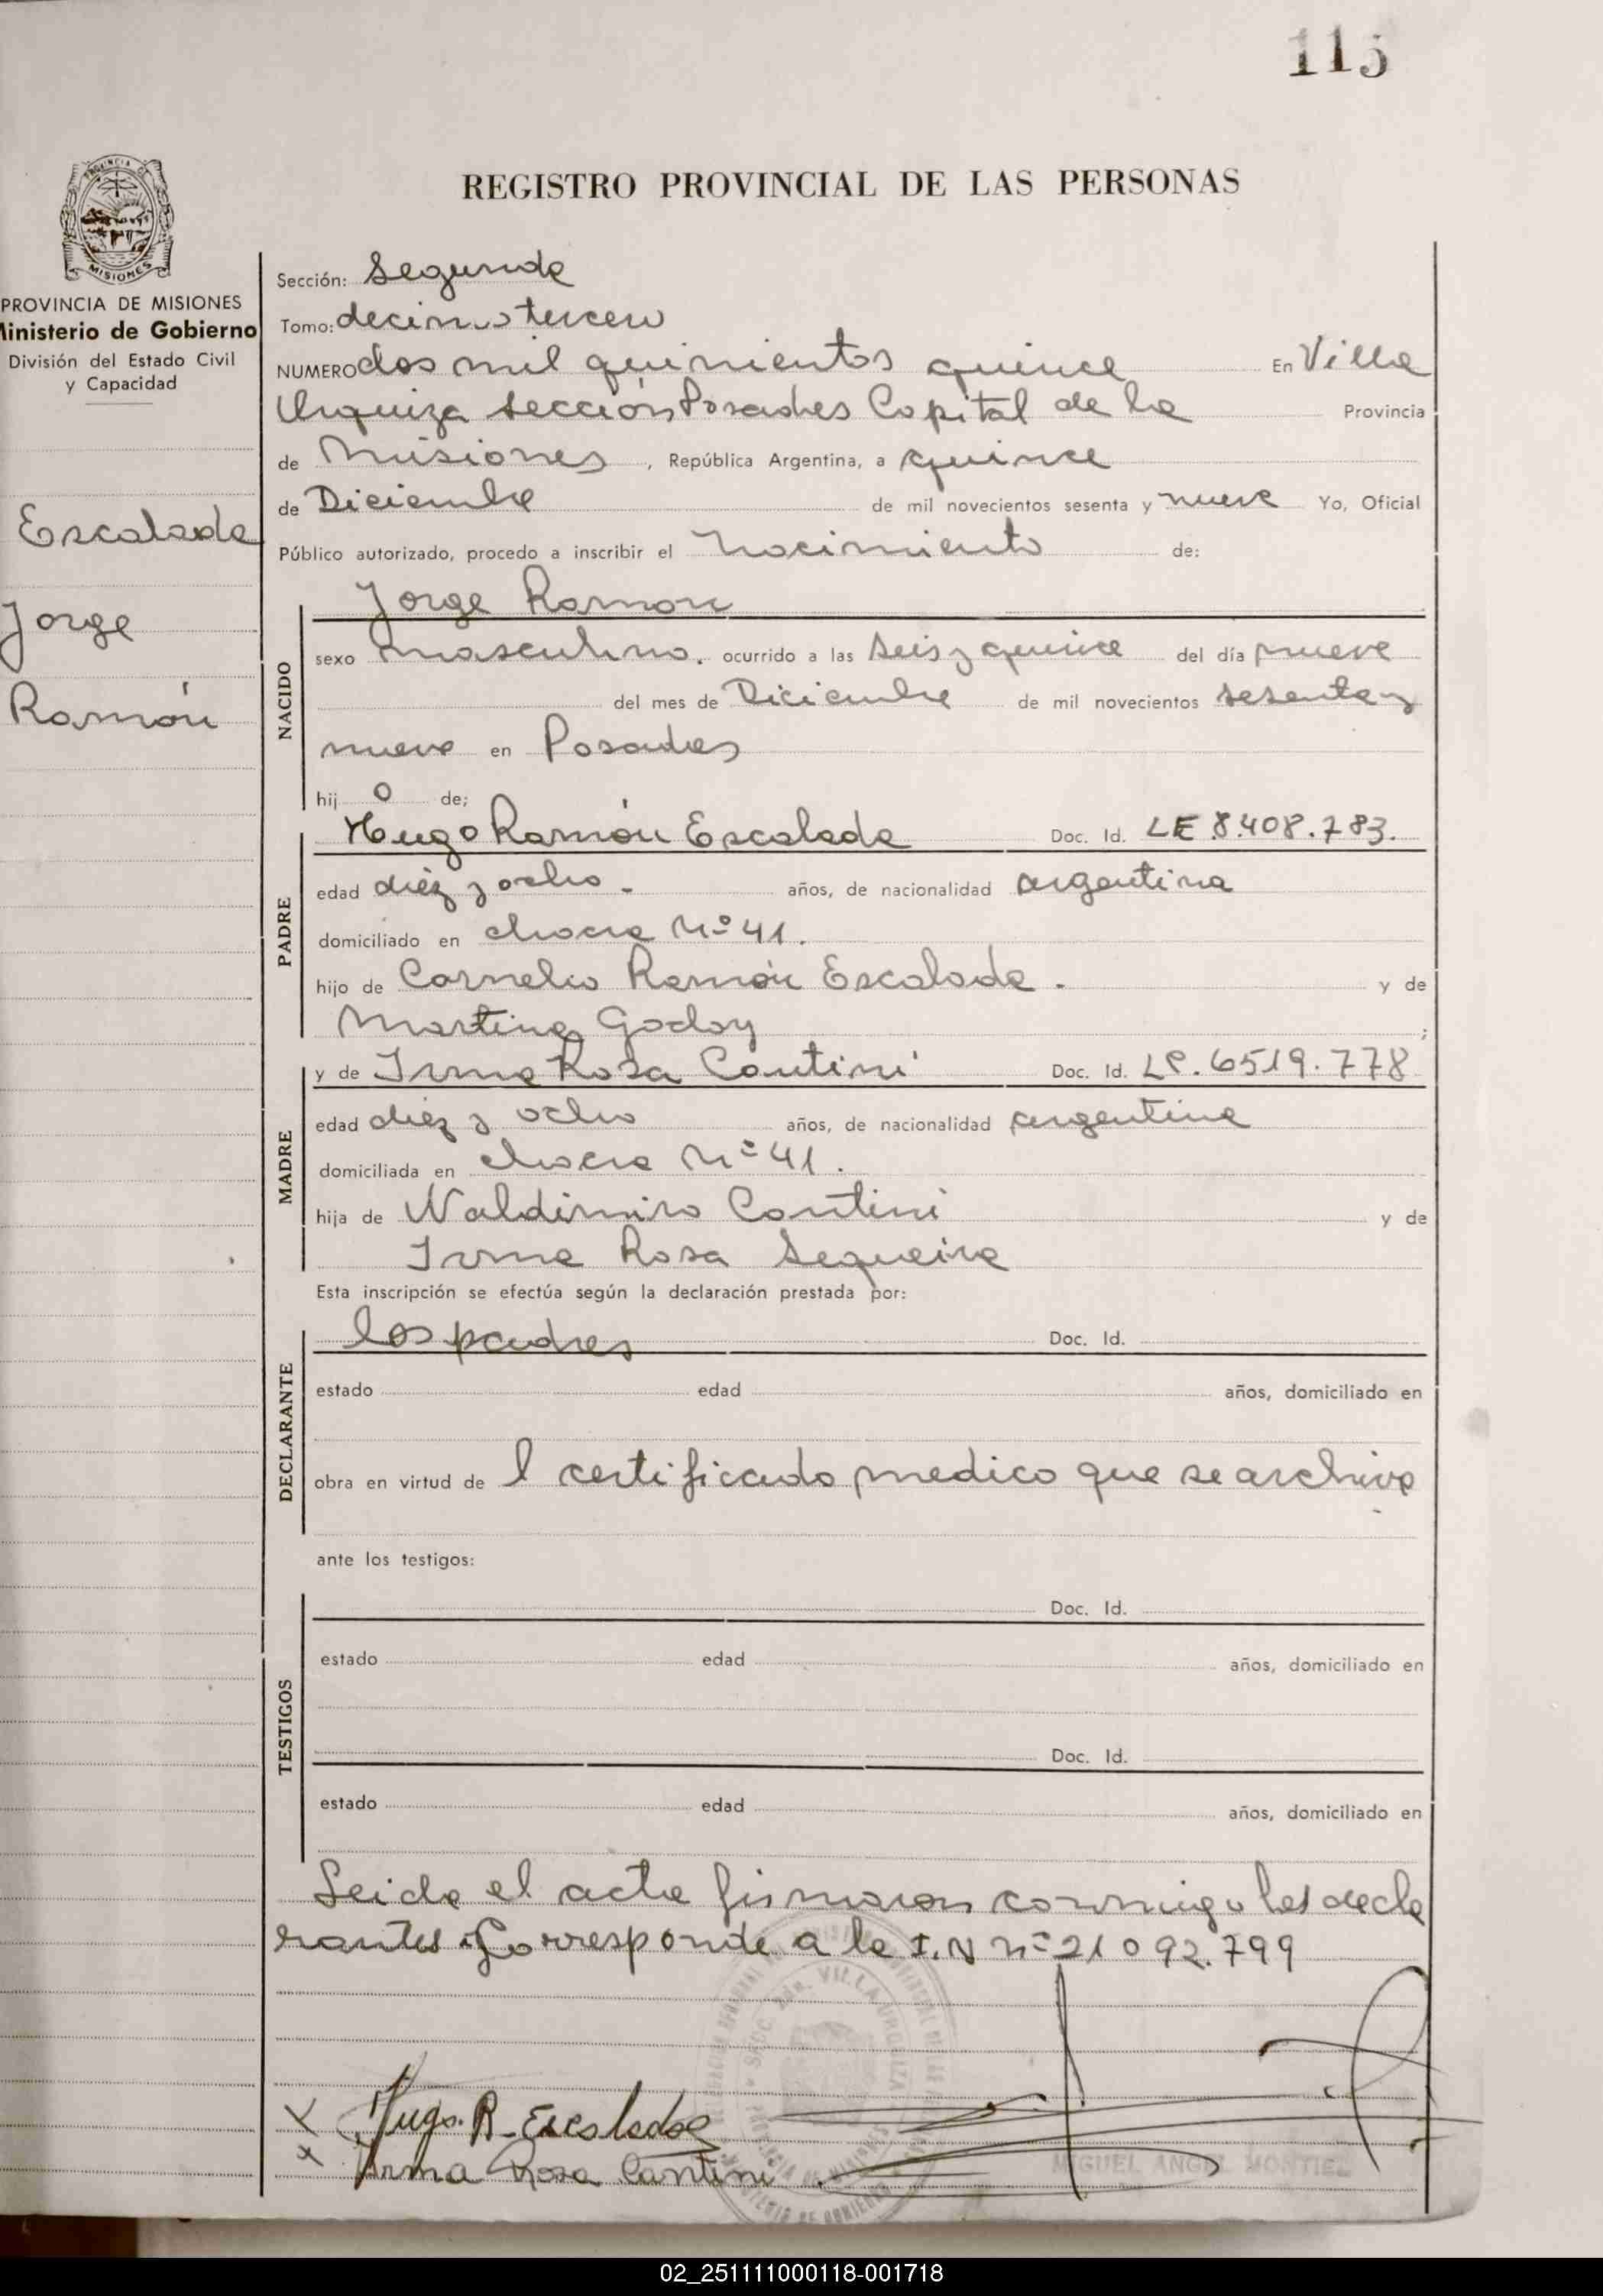 115
REGISTRO PROVINCIAL DE LAS PERSONAS
PROVINCIA DE MISIONES
Ministerio de Gobierno
División del Estado Civil
y Capacidad
Escalada
Jorge
Ramón
Sección: Segunda
Tomo: decimo tercero
NUMERO dos mil quinientos quince En Villa
Urquiza sección Posadas Capital de la Provincia
de Misiones, República Argentina, a quince
de Diciembre de mil novecientos sesenta y nueve Yo, Oficial
Público autorizado, procedo a inscribir el Nacimiento de:
Jorge Ramon
NACIDO
sexo masculino. ocurrido a las seis y quince del día nueve
del mes de Diciembre de mil novecientos sesenta y
nueve en Posadas
hij o de;
PADRE
Hugo Ramón Escalada Doc. Id. LE 8.408.783.
edad diéz y ocho. años, de nacionalidad argentina
domiciliado en chacra Nº 41.
hijo de Cornelio Ramón Escalada. y de
Martina Godoy ;
MADRE
y de Irma Rosa Contini Doc. Id. LC. 6519.778
edad diez y ocho años, de nacionalidad argentina
domiciliada en chacra Nº 41.
hija de Waldimiro Contini y de
Irma Rosa Sequeira
Esta inscripción se efectúa según la declaración prestada por:
DECLARANTE
los padres Doc. Id.
estado edad años, domiciliado en
obra en virtud de l certificado medico que se archiva
ante los testigos:
TESTIGOS
Doc. Id.
estado edad años, domiciliado en
Doc. Id.
estado edad años, domiciliado en
Leida el acta firmaron conmigo los decla
rantes. Corresponde a la I.N nº 21092.799
Hugo. R. Escalada
Irma Rosa Contini
MIGUEL ANGEL MONTIEL
02_251111000118-001718